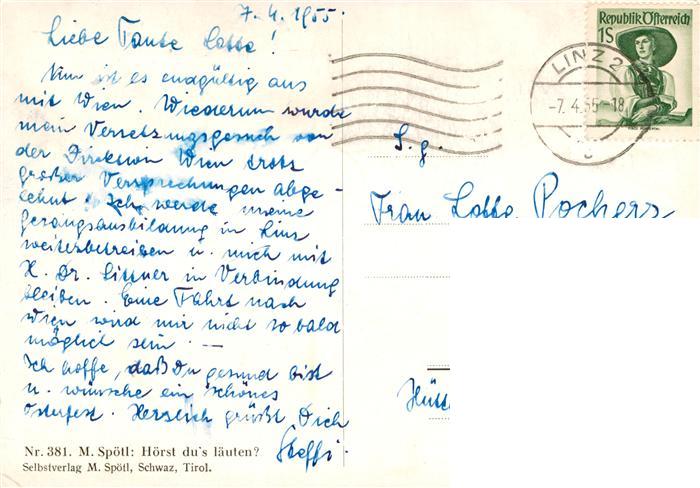 7.4.1955.
Liebe Tante Lotte!
Nun ist es endgültig aus
mit Wien. Wiederum wurde
mein Versetzungsgesuch von
der Direktion Wien trotz
großer Versprechungen abge-
lehnt. Ich werde meine
Gesangsausbildung in Linz
weiterbetreiben u. mich mit
H. Dr. Littner in Verbindung
bleiben. Eine Fahrt nach
Wien wird mir nicht so bald
möglich sein. —
Ich hoffe, daß Du gesund bist
u. wünsche ein schönes
Osterfest. Herzlich grüßt Dich
Steffi.
Nr. 381. M. Spötl: Hörst du's läuten?
Selbstverlag M. Spötl, Schwaz, Tirol.
Republik Österreich
1S
LINZ 2
-7.4.55-18
S. g.
Frau Lotte Pochers
Hütt